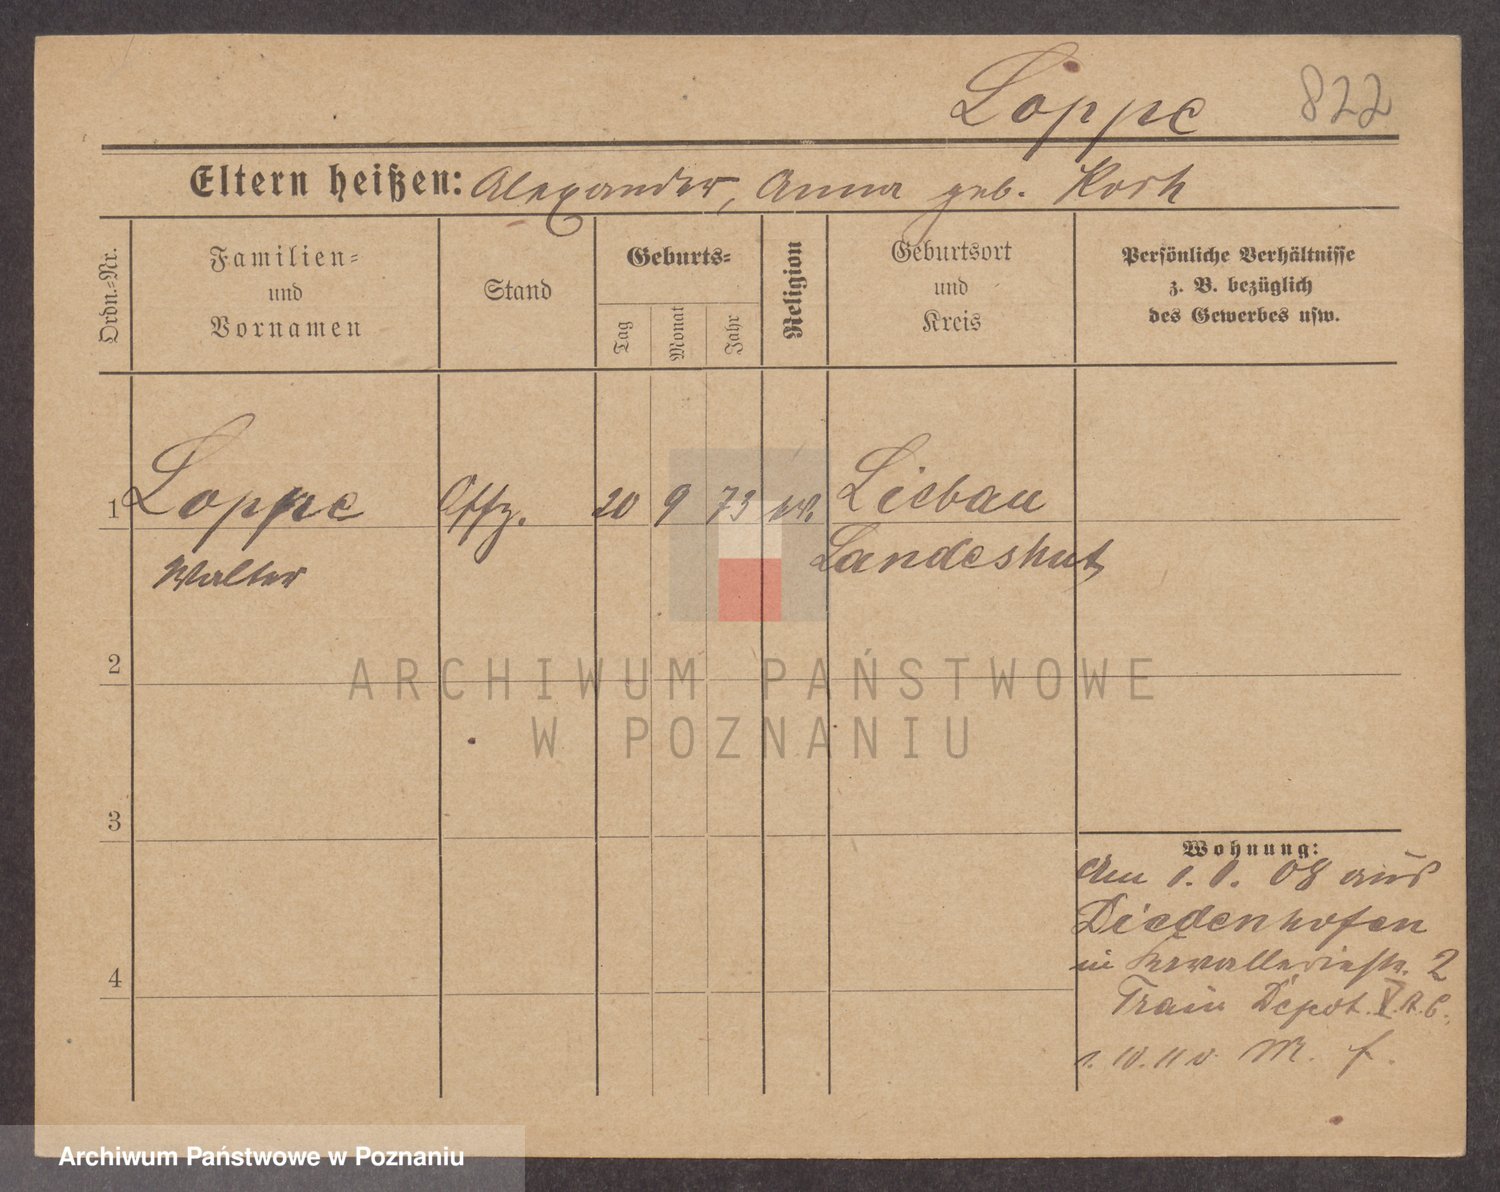 Loppe 822
Eltern heißen: Alexander, Anna geb. Koch
Ordn.=Nr.
Familien=
und
Vornamen
Stand
Geburts=
Tag
Monat
Jahr
Religion
Geburtsort
und
Kreis
Persönliche Verhältnisse
z. B. bezüglich
des Gewerbes usw.
1 Loppe Offz. 20 9 73 Liebau
Walter Landeshut
2
3
4
Wohnung:
Am 1. 1. 08 aus
Diedenhofen
in Kavalleriestr. 2
Train Depot. V. A. C.
1. 10. 11 v. M. f.
ARCHIWUM PAŃSTWOWE
W POZNANIU
Archiwum Państwowe w Poznaniu